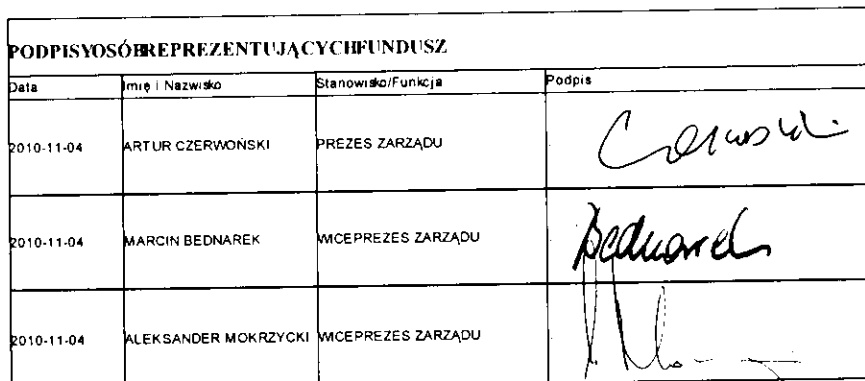 PODPISY OSÓB REPREZENTUJĄCYCH FUNDUSZ
Data Imię i Nazwisko Stanowisko/Funkcja Podpis
2010-11-04 ARTUR CZERWOŃSKI PREZES ZARZĄDU
2010-11-04 MARCIN BEDNAREK WICEPREZES ZARZĄDU Bednarek
2010-11-04 ALEKSANDER MOKRZYCKI WICEPREZES ZARZĄDU